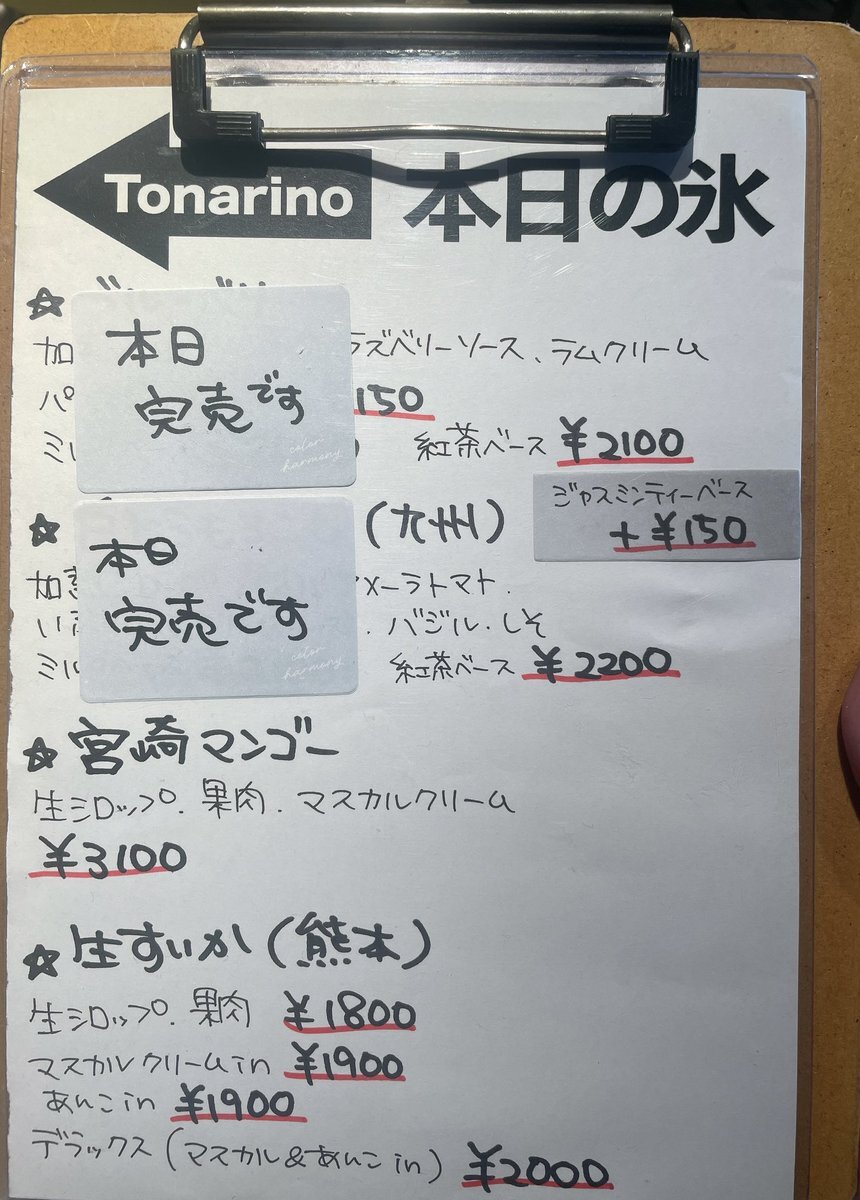 Tonarino 本日の氷
☆
加 ラズベリーソース、ラムクリーム
本日
完売です
color
harmony
パ 150
ミル 紅茶ベース ¥2100
ジャスミンティーベース
+¥150
☆ (九州)
本日
完売です
color
harmony
加 メーラトマト.
い . バジル.しそ
ミル 紅茶ベース ¥2200
☆ 宮崎マンゴー
生シロップ.果肉.マスカルクリーム
¥3100
☆ 生すいか(熊本)
生シロップ.果肉 ¥1800
マスカルクリームin ¥1900
あんこin ¥1900
デラックス(マスカル&あんこin) ¥2000